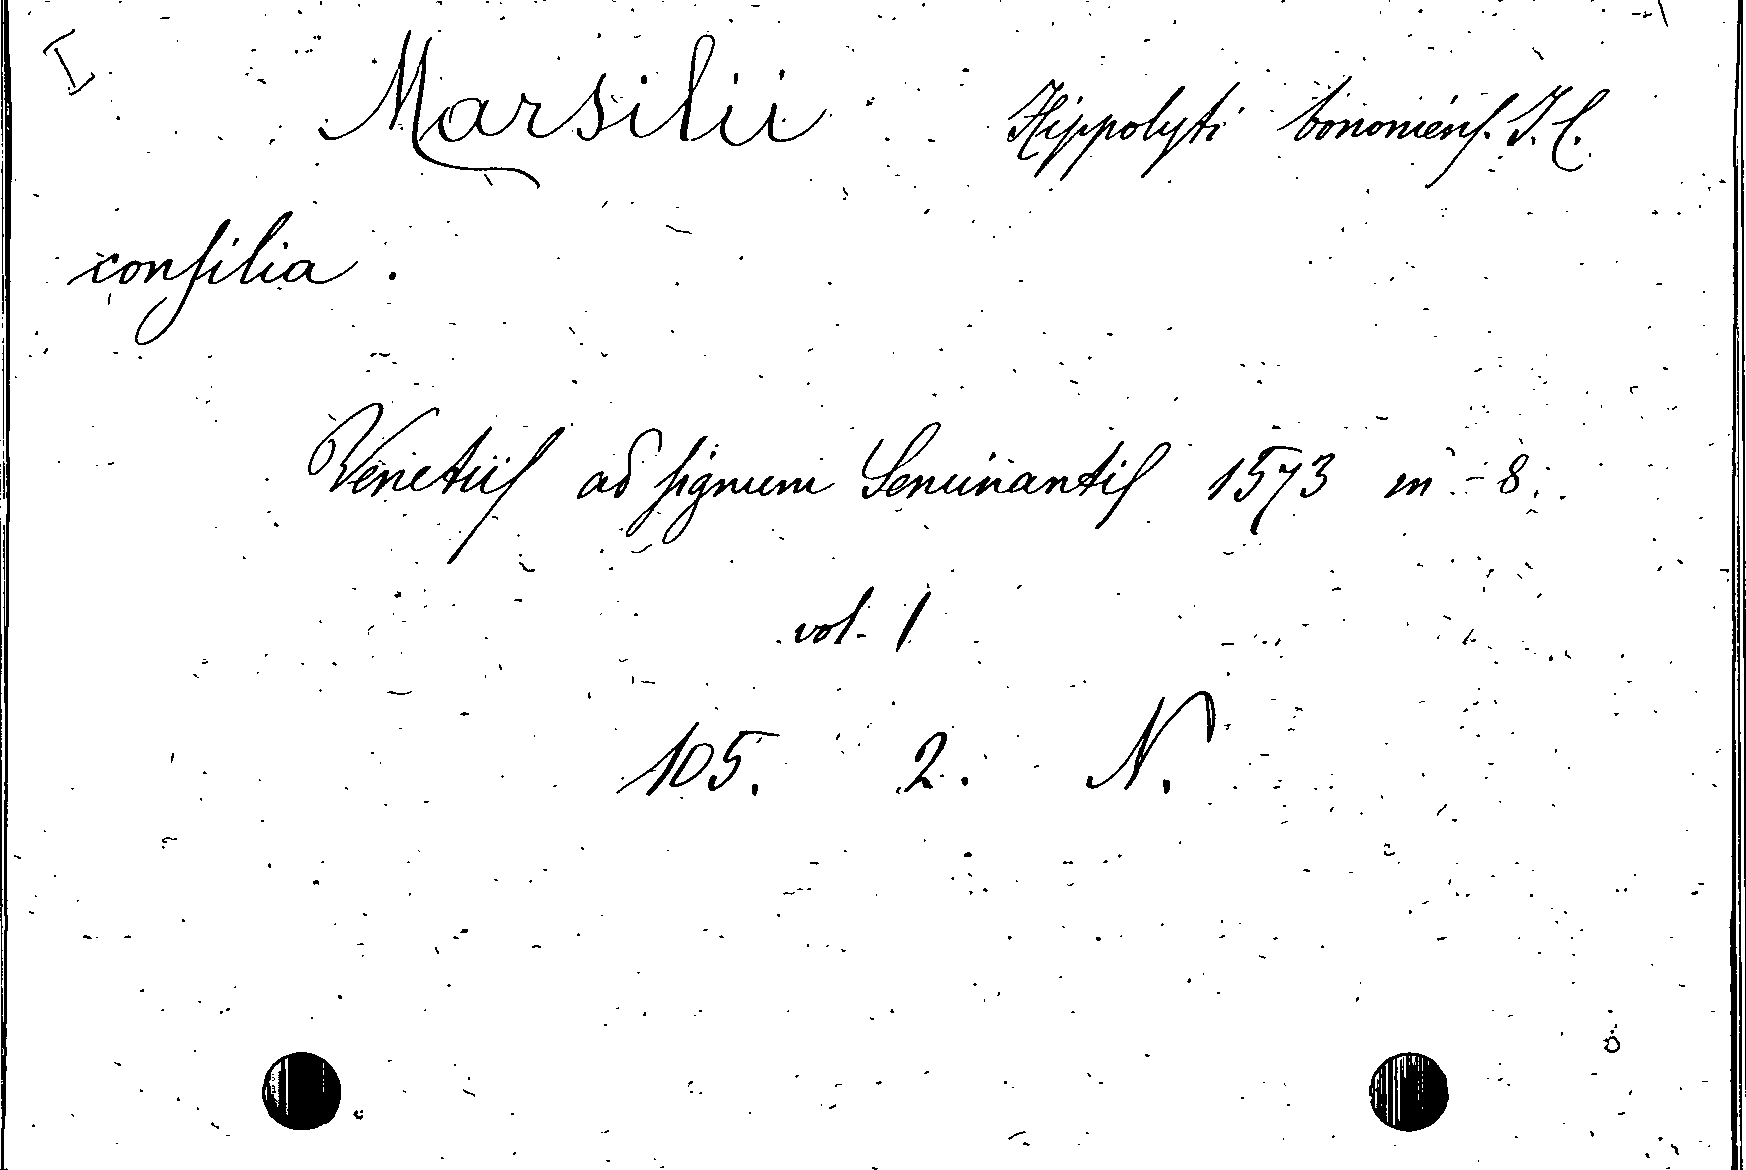 I
Marsilii Hippolyti bononiens. J. C.
consilia.
Venetiis ad signum Seminantis 1573 in - 8.
vol. 1
105. 2. N.